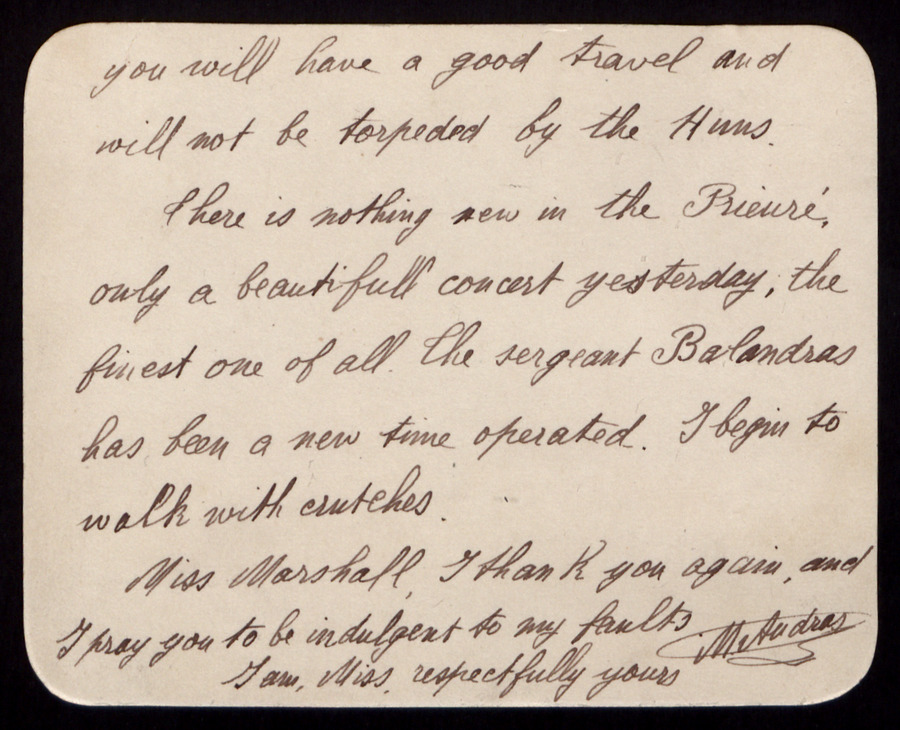 you will have a good travel and
will not be torpeded by the Huns.
There is nothing new in the Prieuré,
only a beautifull concert yesterday, the
finest one of all. The sergeant Balandras
has been a new time operated. I begin to
walk with crutches.
Miss Marshall, I thank you again, and
I pray you to be indulgent to my faults
I am, Miss, respectfully yours
M. Audras